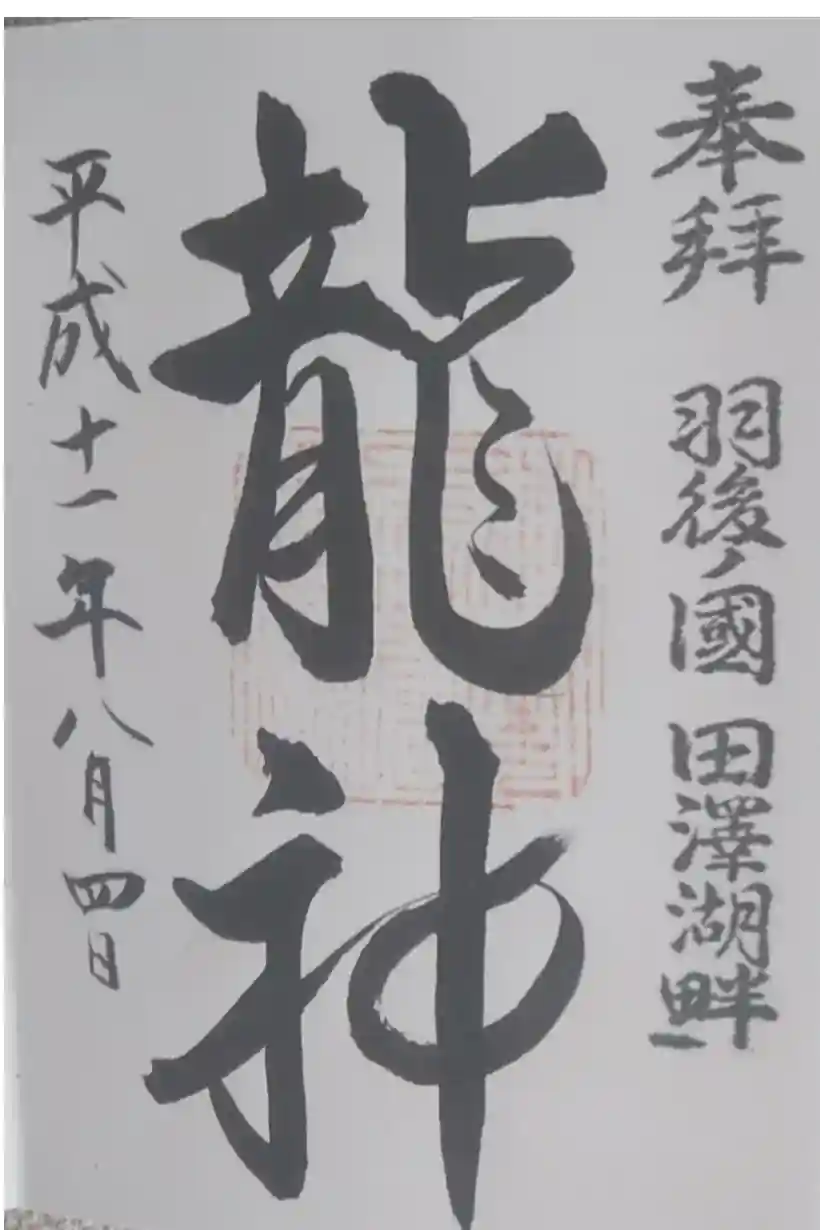 奉拝 羽後ノ國 田澤湖畔
龍神
平成十一年八月四日